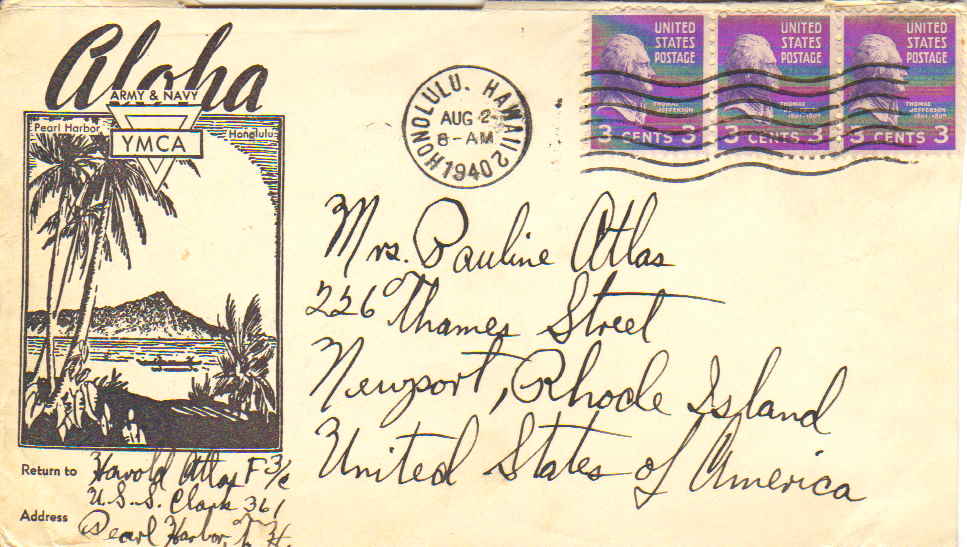 Aloha
ARMY & NAVY
Pearl Harbor
YMCA
Honolulu
HONOLULU, HAWAII 2
AUG 2
8-AM
1940
UNITED STATES POSTAGE
THOMAS JEFFERSON
1801-1809
3 CENTS 3
UNITED STATES POSTAGE
THOMAS JEFFERSON
1801-1809
3 CENTS 3
UNITED STATES POSTAGE
THOMAS JEFFERSON
1801-1809
3 CENTS 3
Mrs. Pauline Atlas
226 Thames Street
Newport, Rhode Island
United States of America
Return to Harold Atlas F 3/c
U.S.S. Clark 361
Address Pearl Harbor, T. H.